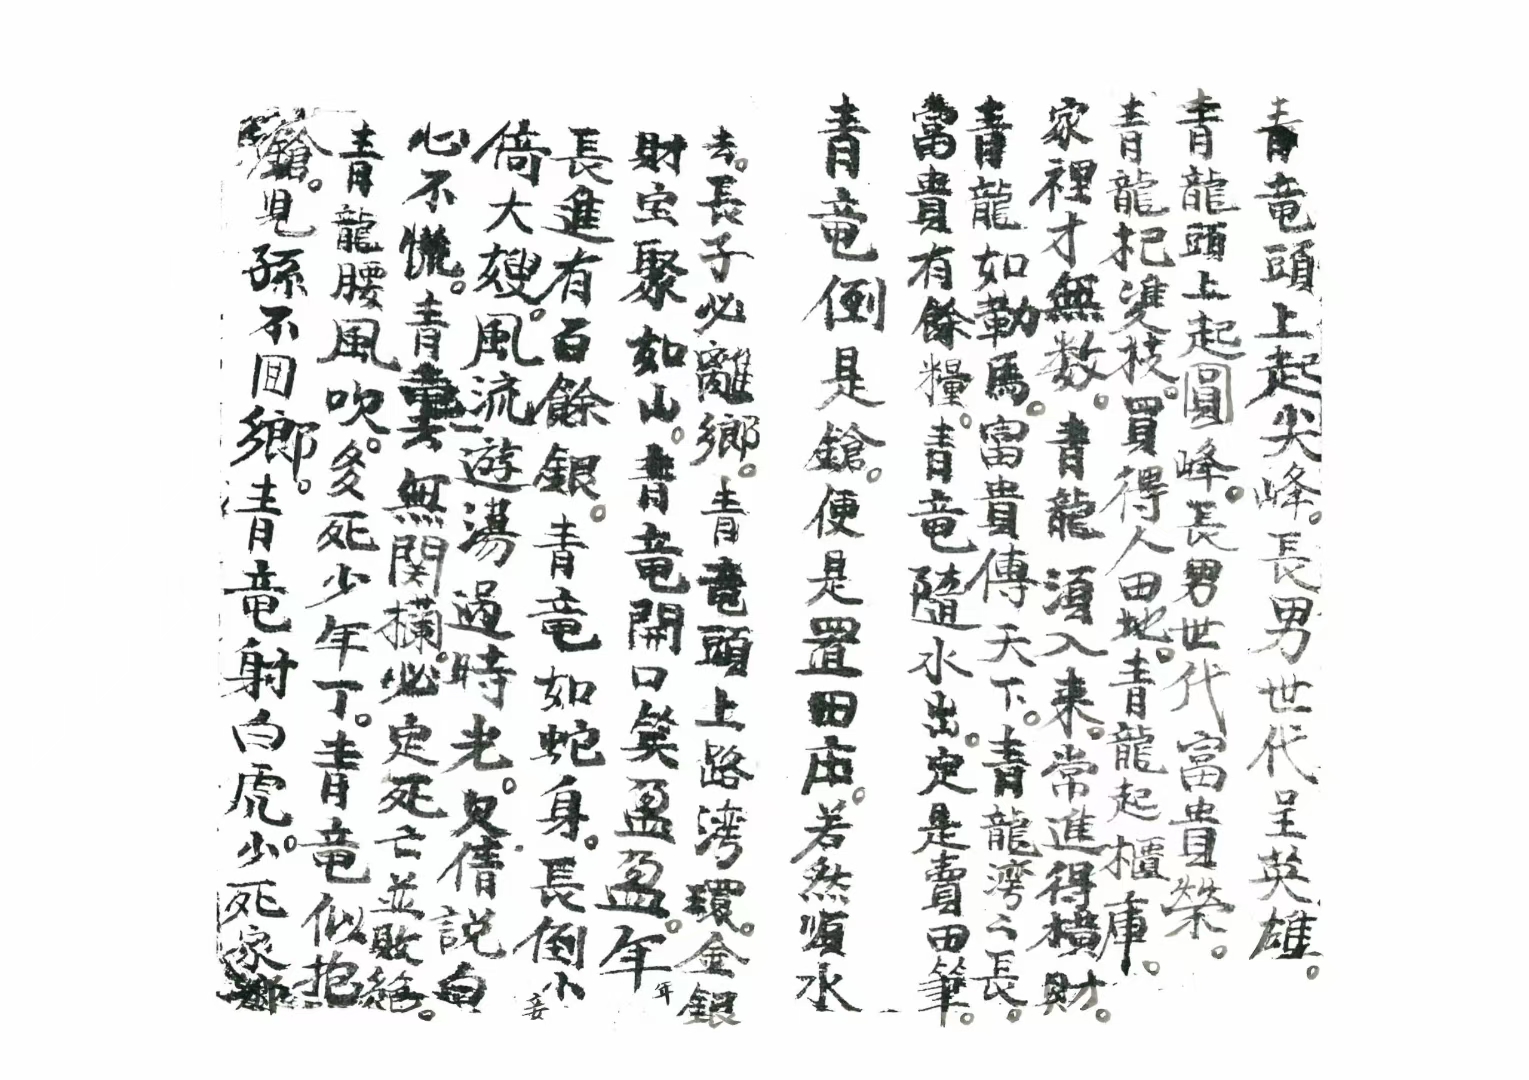 青竜頭上起尖峰。長男世代呈英雄。
青龍頭上起圓峰。長男世代富貴榮。
青龍把進枝。買得人田地。青龍起櫃庫。
家裡才無数。青龍湏入来。常進得横財。
青龍如勒馬。富貴傳天下。青龍湾之長。
當貴有餘糧。青竜隨水出。定是賣田筆。
青竜倒是鎗。便是置田庄。若然順水
去。長子必離鄉。青竜頭上路湾環。金銀
財宝聚如山。青竜開口笑盈盈。年年
長進有百餘銀。青竜如蛇身。長倒小妾
倚大嫂。風流遊湯過時光。又倩説白
心不慌。青竜去無関欄。必定死亡並敗絶。
青龍腰風吹。多死少年丁。青竜似抱
鎗。見孫不回鄉。青竜射白虎。少死家鄉